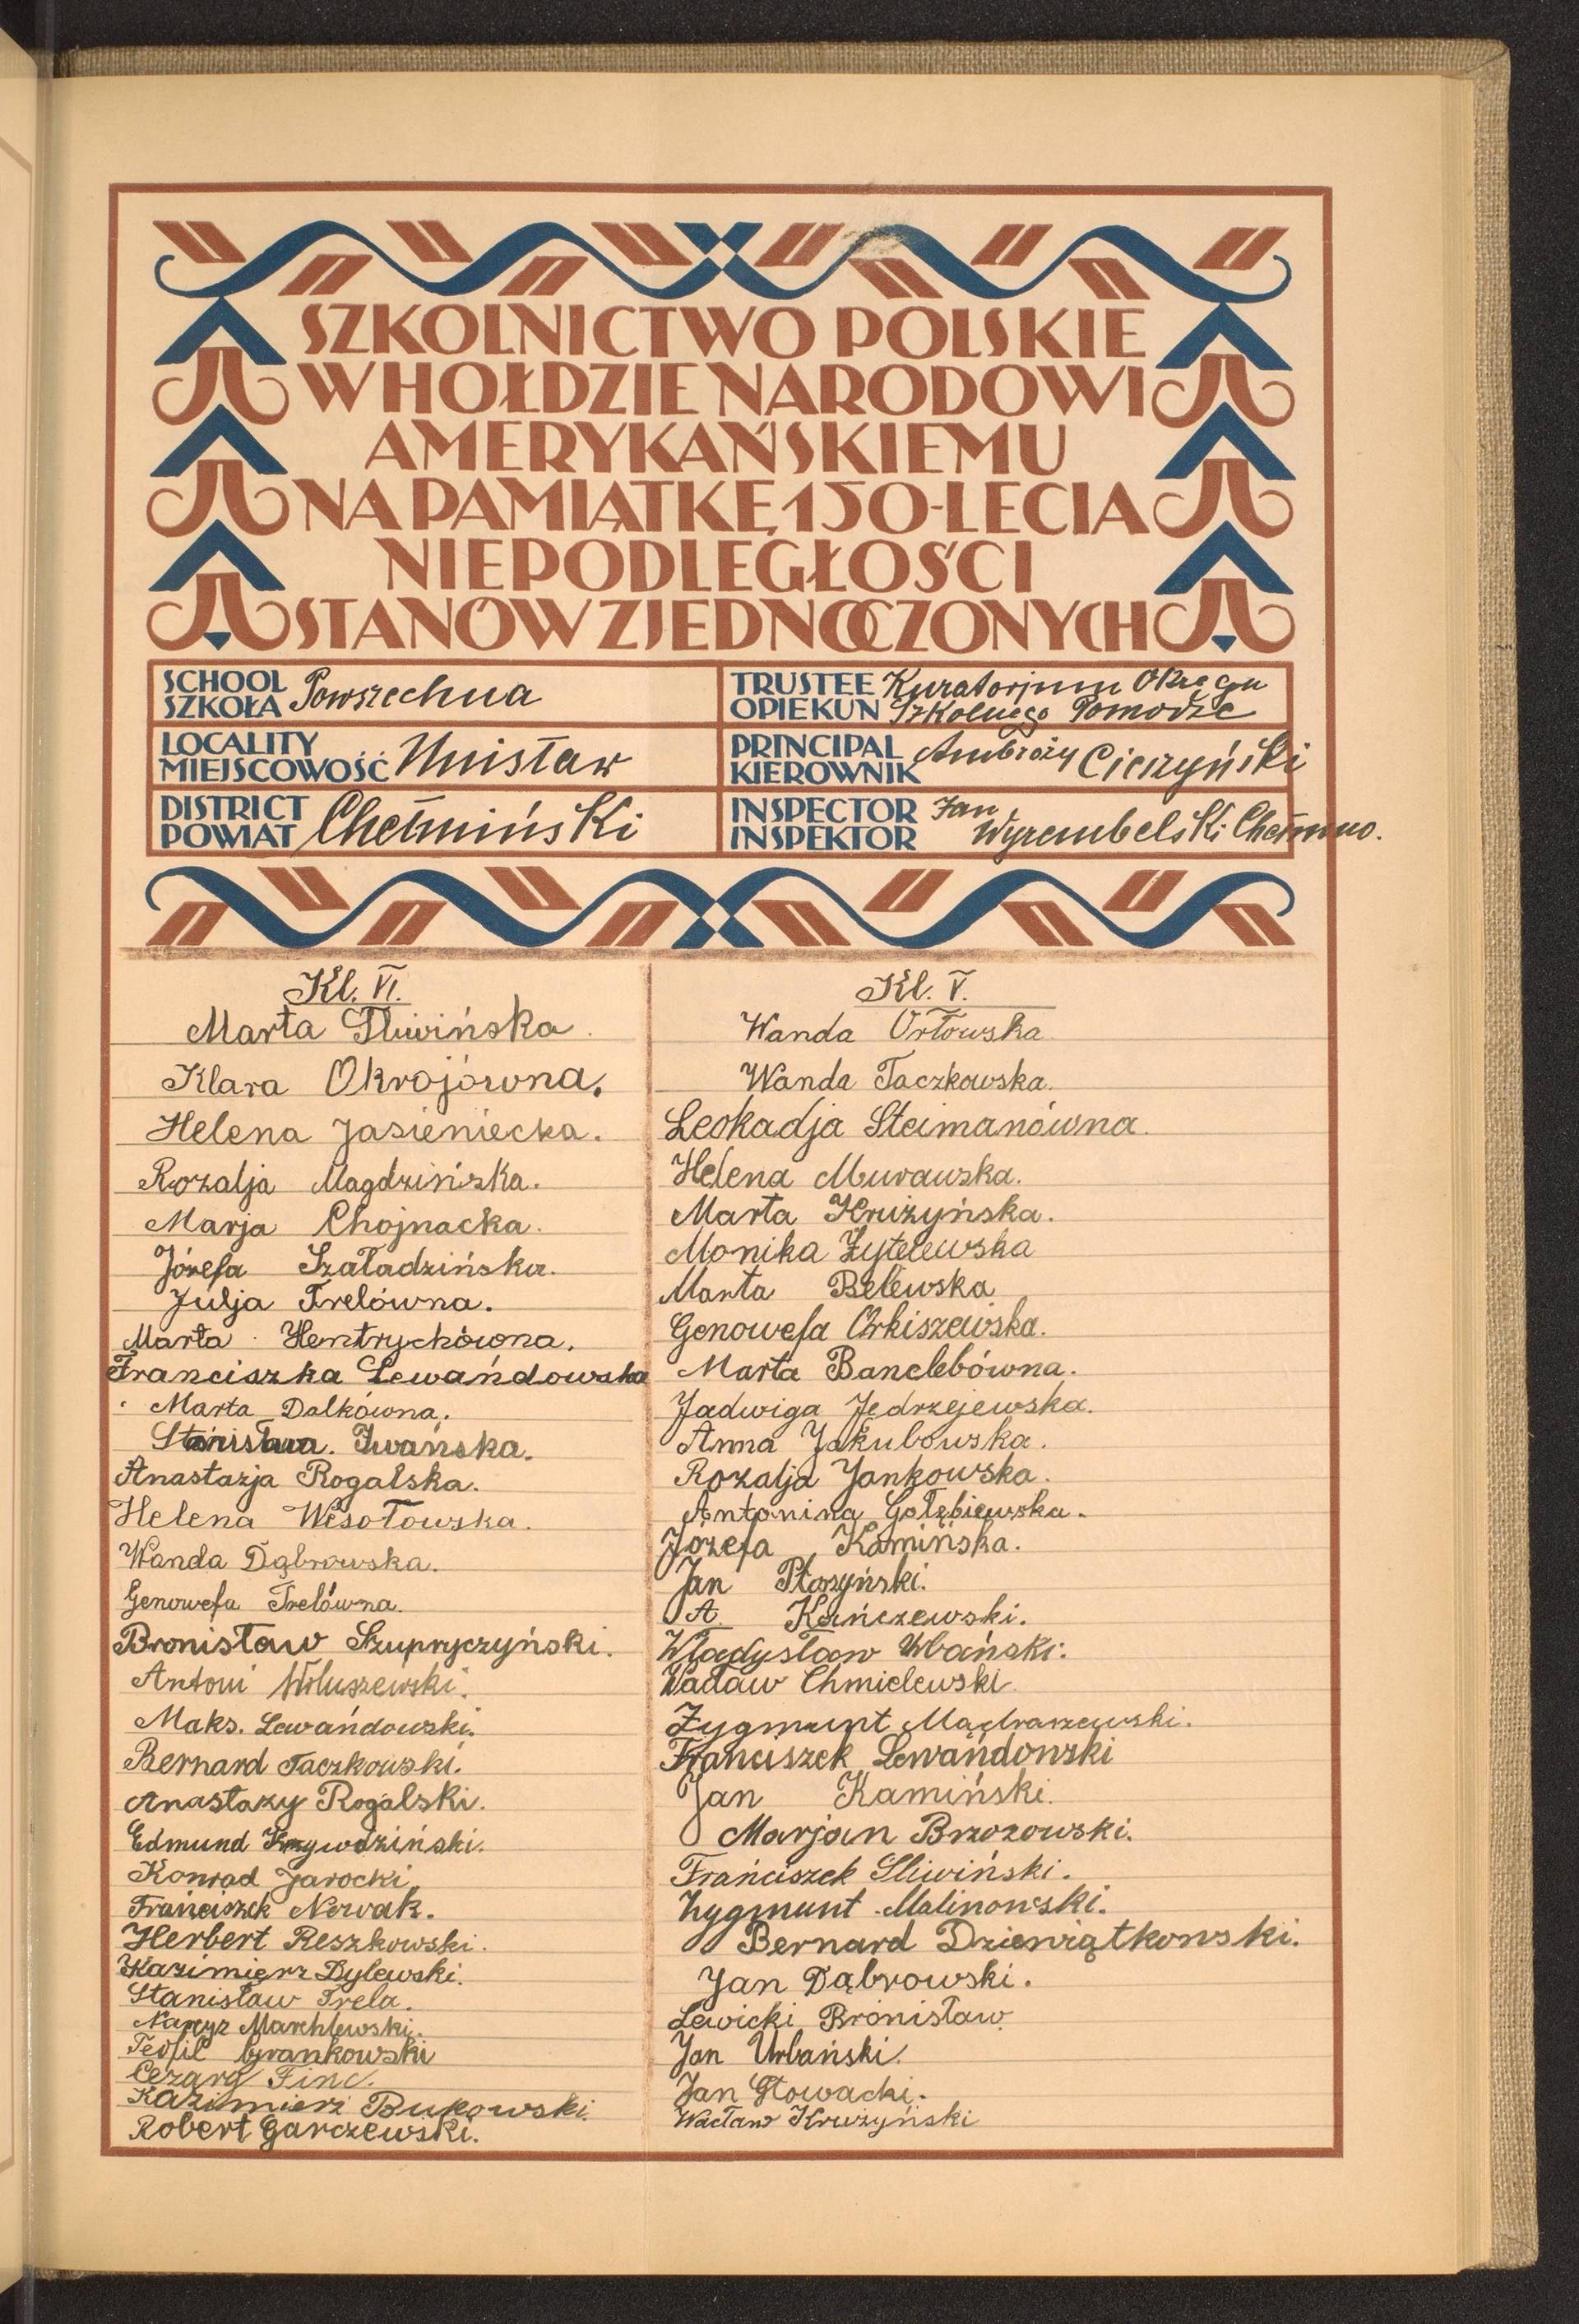 SZKOLNICTWO POLSKIE
W HOŁDZIE NARODOWI
AMERYKAŃSKIEMU
NA PAMIĄTKĘ 150-LECIA
NIEPODLEGŁOŚCI
STANÓW ZJEDNOCZONYCH
SCHOOL
SZKOŁA Powszechna
LOCALITY
MIEJSCOWOŚĆ Unisław
DISTRICT
POWIAT Chełmiński
TRUSTEE Kuratorjum Okręgu
OPIEKUN Szkolnego Pomorze
PRINCIPAL
KIEROWNIK Ambroży Ciczyński
INSPECTOR Jan
INSPEKTOR Wyrembelski Chełmno.
Kl. VI.
Marta Śliwińska.
Klara Okrojówna.
Helena Jasieniecka.
Rozalja Magdzińska.
Marja Chojnacka.
Józefa Szaładzińska.
Julja Trelówna.
Marta Hentrychówna.
Franciszka Lewańdowska
Marta Dalkówna.
Stanisława. Iwańska.
Anastazja Rogalska.
Helena Wesołowska.
Wanda Dąbrowska.
Genowefa Trelówna.
Bronisław Szupryczyński.
Antoni Wiluszewski.
Maks. Lewańdowski.
Bernard Taczkowski.
Anastazy Rogalski.
Edmund Krzywdziński.
Konrad Jarocki.
Franciszek Nowak.
Herbert Reszkowski.
Kazimierz Dylewski.
Stanisław Trela.
Narcyz Marchlewski.
Teofil Grankowski
Cezary Finc.
Kazimierz Bukowski.
Robert Garczewski.
Kl. V.
Wanda Orłowska
Wanda Taczkowska.
Leokadja Steimanówna.
Helena Murawska.
Marta Krużyńska.
Monika Żytelewska
Marta Belewska
Genowefa Orkiszewska.
Marta Banclebówna.
Jadwiga Jędrzejewska.
Anna Jakubowska.
Rozalja Jankowska.
Antonina Gołębiewska.
Józefa Kamińska.
Jan Płoszyński.
A. Kańczewski.
Władysław Urbański.
Wacław Chmielewski
Zygmunt Mądraszewski.
Franciszek Lewańdowski
Jan Kamiński.
Marjan Brzozowski.
Frańciszek Śliwiński.
Zygmunt Malinowski.
Bernard Dziewiątkowski.
Jan Dąbrowski.
Lewicki Bronisław
Jan Urbański.
Jan Głowacki.
Wacław Krużyński